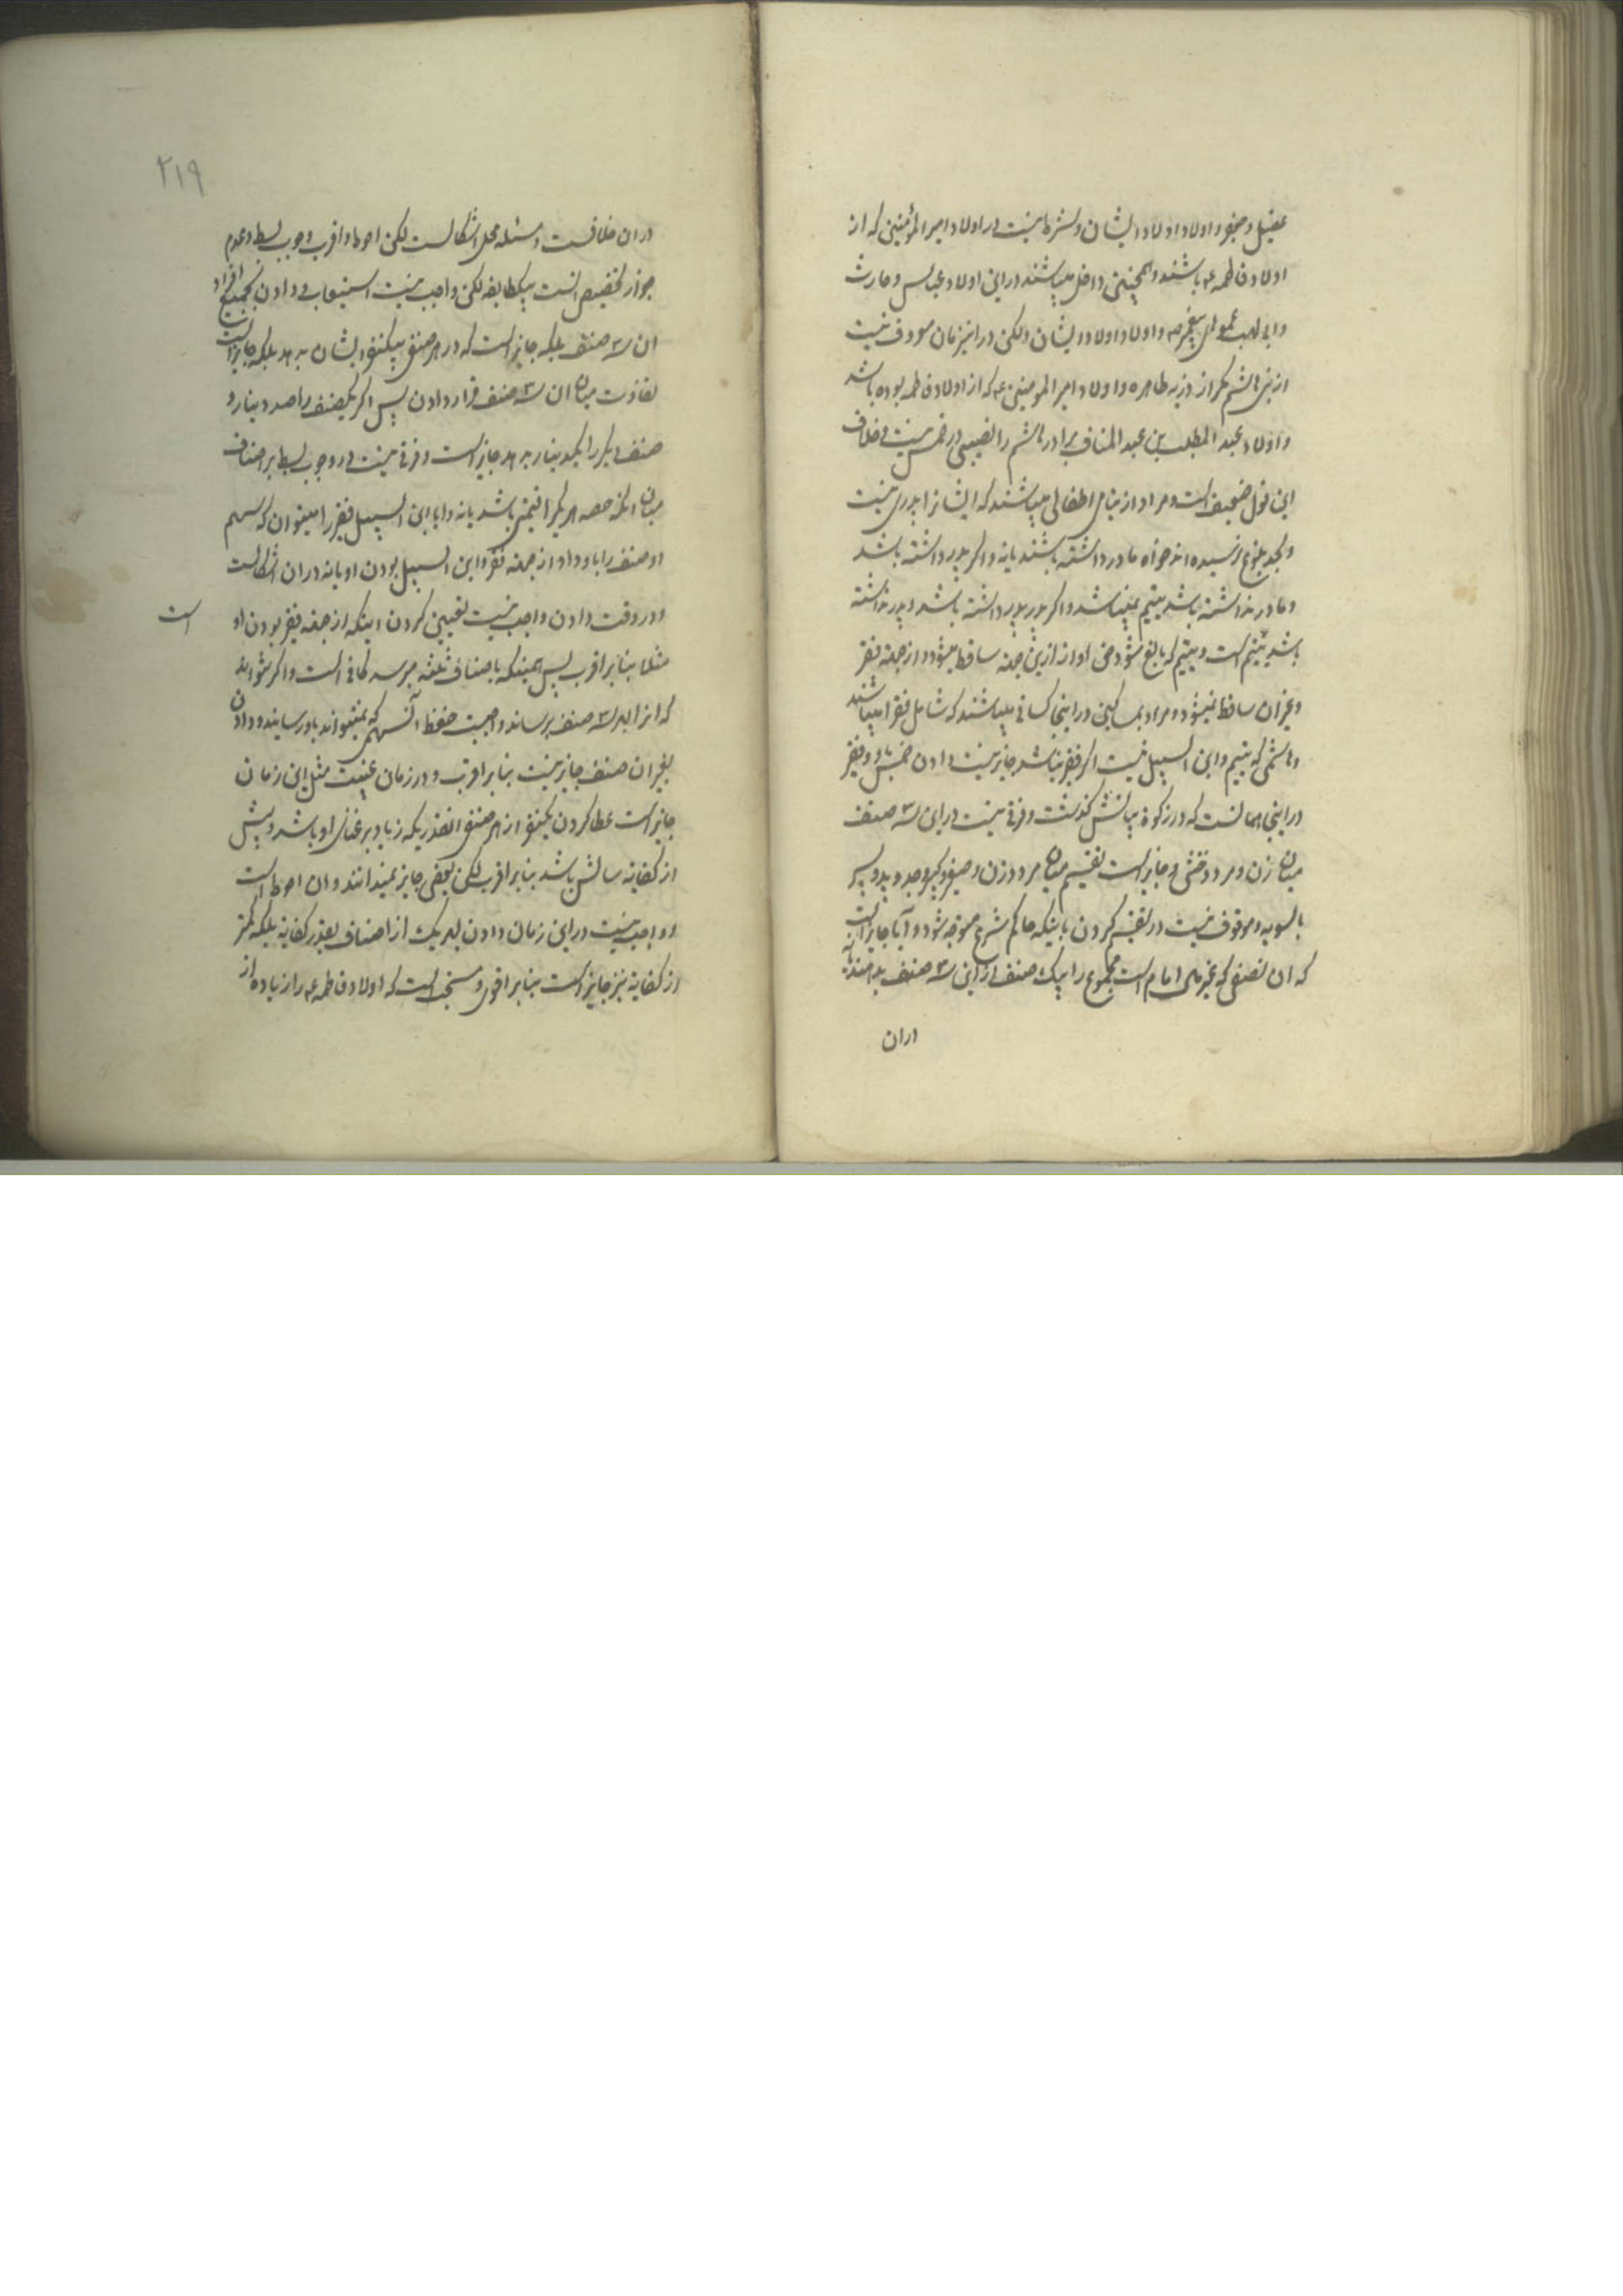 عقیل و جعفر و اولاد اولاد ایشان و شرط نیست در اولاد امیر المؤمنین که از
اولاد فاطمه ع باشند و همچنین داخل میباشند در این اولاد عباس و حارث
و ابی لهب عموهای پیغمبر ص و اولاد اولاد ایشان ولکن در این زمان معروف نیست
از بنی هاشم مگر از ذریه طاهره و اولاد امیر المومنین ع که از اولاد فاطمه بوده باشد
و اولاد عبد المطلب بن عبد المناف برادر هاشم را نصیبی در خمس نیست و خلاف
این قول ضعیف است و مراد از یتامی اطفالی میباشند که ایشانرا پدری نیست
و بحد بلوغ نرسیده اند خواه مادر داشته باشند یا نه و اگر پدر داشته باشد
و مادر نداشته باشد یتیم نمیباشد و اگر پدر پدر داشته باشد و پدر نداشته
باشد یتیم است و یتیم که بالغ شود حق او از این جهة ساقط میشود و از جهة فقر
و غیر آن ساقط نمیشود و مراد بمساکین در اینجا کسانی میباشند که شامل فقرا میباشند
و هاشمی که یتیم و ابن السبیل نیست اگر فقیر نباشد جایز نیست دادن خمس باو و فقیر
در اینجا همانست که در زکوة بیانش گذشت و فرقی نیست در این سه صنف
میان زن و مرد و خنثی و جایز است تقسیم میان مرد و زن و صغیر و کبیر و جد و پدر و پسر
بالسویه و موقوف نیست در تقسیم کردن باینکه حاکم شرع متوجه شود و آیا جایز است
که آن نصفی که غیر مال امام است مجموع را بیک صنف از این سه صنف بدهند یا نه
در آن
۲۱۹
در آن خلافست و مسئله محل اشکالست لکن احوط و اقرب وجوب بسط و عدم
جواز تخصیص است بیکطایفه لکن واجب نیست استیعاب و دادن بجمیع افراد
آن سه صنف بلکه جایز است که در هر صنفی بیکنفر ایشان بدهد بلکه جایز است
تفاوت میان آن سه صنف قرار دادن پس اگر یکصنف را صد دینار و
صنف دیگر را یکدینار بدهد جایز است و فرقی نیست در وجوب بسط بر اصناف
میان آنکه حصه هر یک را قیمتی باشد یا نه و ایا ابن السبیل فقیر را میتوان که سهم
دو صنف را باو داد از جهة فقر و ابن السبیل بودن او یا نه در آن اشکالست
و در وقت دادن واجب نیست تعیین کردن اینکه از جهة فقیر بودن او است
مثلا بنا بر اقرب پس همینکه باصناف ثلثه میرسد کافی است و اگر نتواند
که انرا بهر سه صنف برساند واجبست حفظ آن سهمی که نمیتواند باو رساند و دادن
بغیر آن صنف جایز نیست بنا بر اقرب و در زمان غیبت مثل این زمان
جایز است عطا کردن بیکنفر از هر صنفی انقدریکه زیاد بر غنای او باشد و بیش
از کفایة سالش باشد بنا بر اقرب لکن بعضی جایز نمیدانند و آن احوط است
و واجب نیست در این زمان دادن بهر یک از اصناف بقدر کفایة بلکه کمتر
از کفایة نیز جایز است بنا بر اقوی و مستحب است که اولاد فاطمه ع را زیاده از